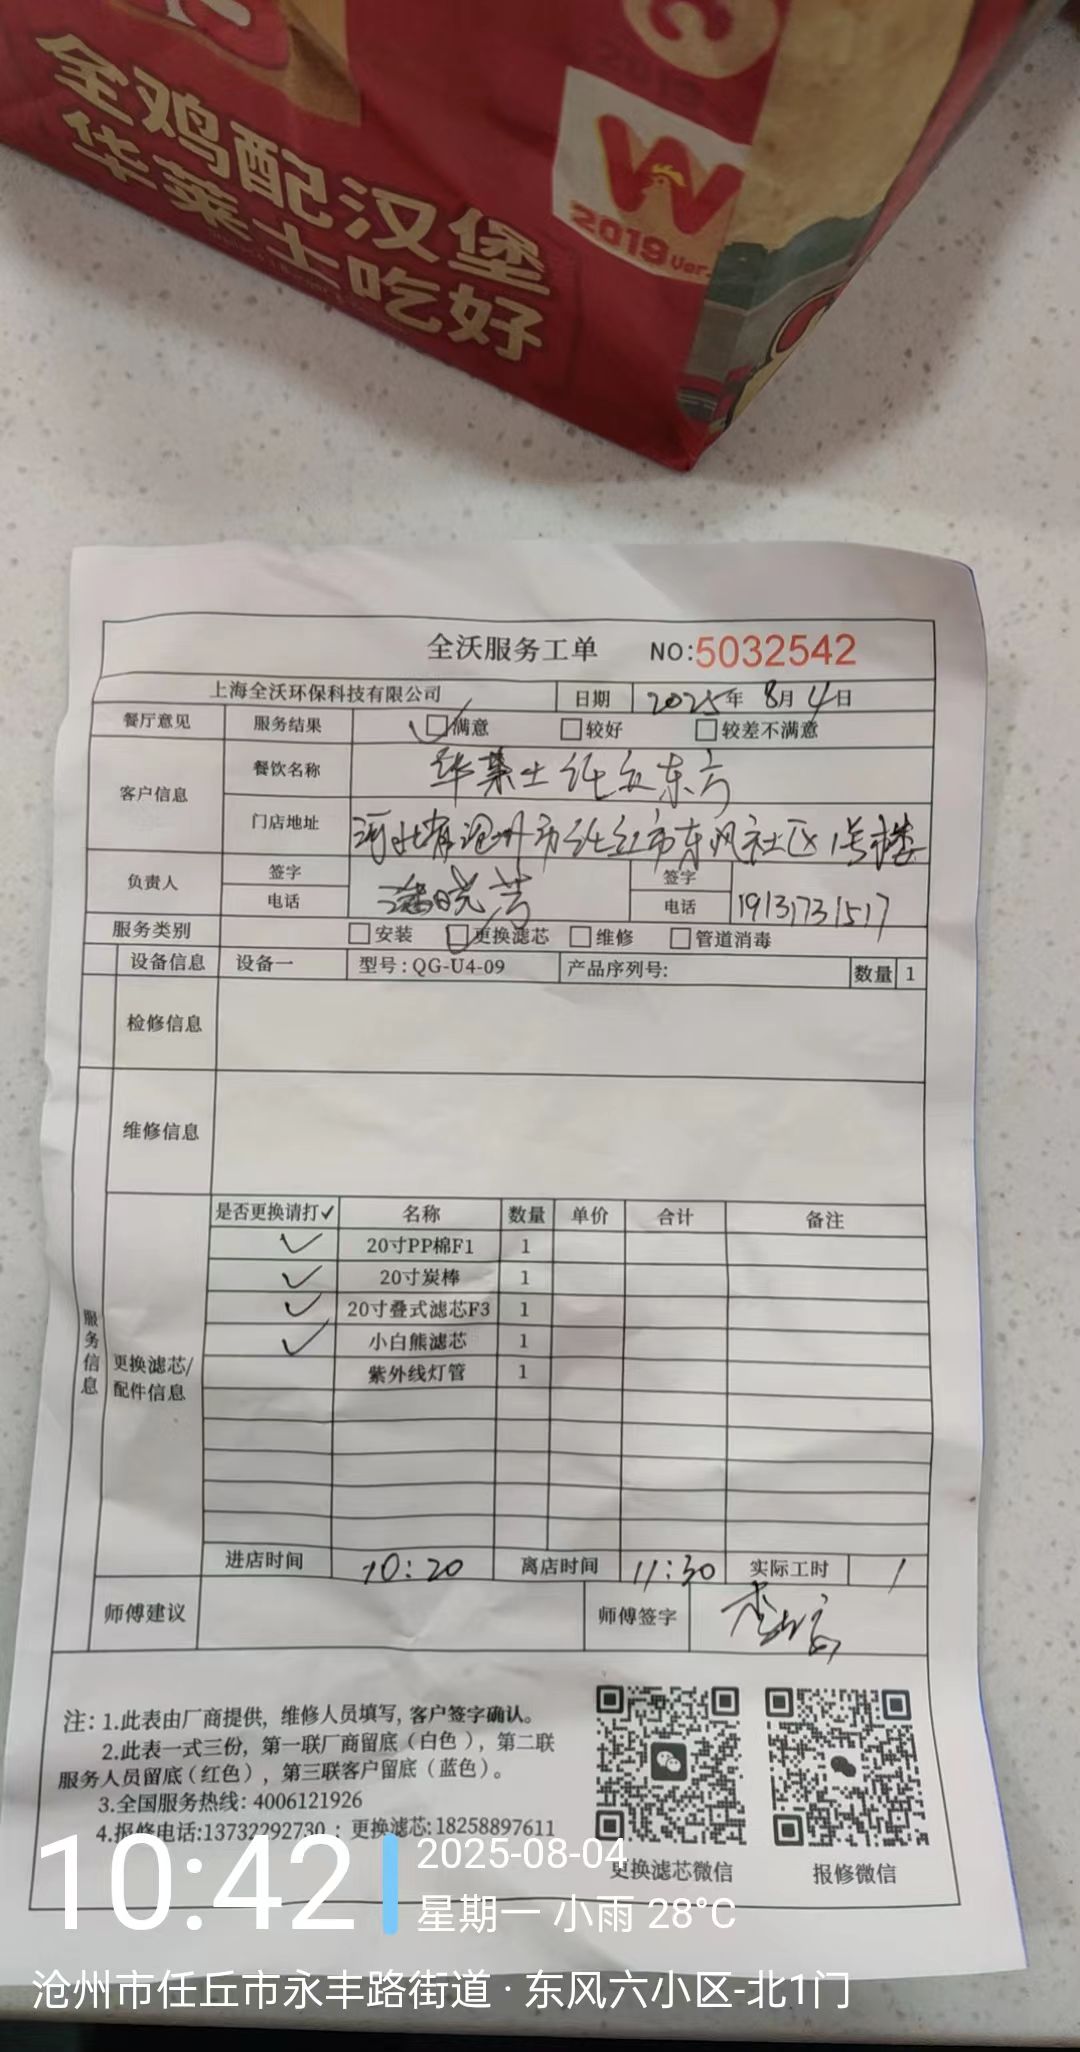 全鸡配汉堡
华莱士吃好
2019 Ver.
全沃服务工单 NO:5032542
上海全沃环保科技有限公司 日期 2025年 8月 4日
餐厅意见 服务结果 满意 较好 较差不满意
客户信息 餐饮名称 华莱士任丘东方
门店地址 河北省沧州市任丘市东风社区1号楼
负责人 签字 潘晓芳 签字
电话 电话 19131731517
服务类别 安装 更换滤芯 维修 管道消毒
设备信息 设备一 型号:QG-U4-09 产品序列号: 数量 1
检修信息
维修信息
服务信息
更换滤芯/配件信息
是否更换请打✓ 名称 数量 单价 合计 备注
✓ 20寸PP棉F1 1
✓ 20寸炭棒 1
✓ 20寸叠式滤芯F3 1
✓ 小白熊滤芯 1
紫外线灯管 1
进店时间 10:20 离店时间 11:30 实际工时 1
师傅建议 师傅签字
注: 1.此表由厂商提供, 维修人员填写, 客户签字确认。
2.此表一式三份, 第一联厂商留底(白色), 第二联
服务人员留底(红色), 第三联客户留底(蓝色)。
3.全国服务热线: 4006121926
4.报修电话:13732292730 ; 更换滤芯:18258897611
更换滤芯微信 报修微信
10:42
2025-08-04
星期一 小雨 28°C
沧州市任丘市永丰路街道·东风六小区-北1门